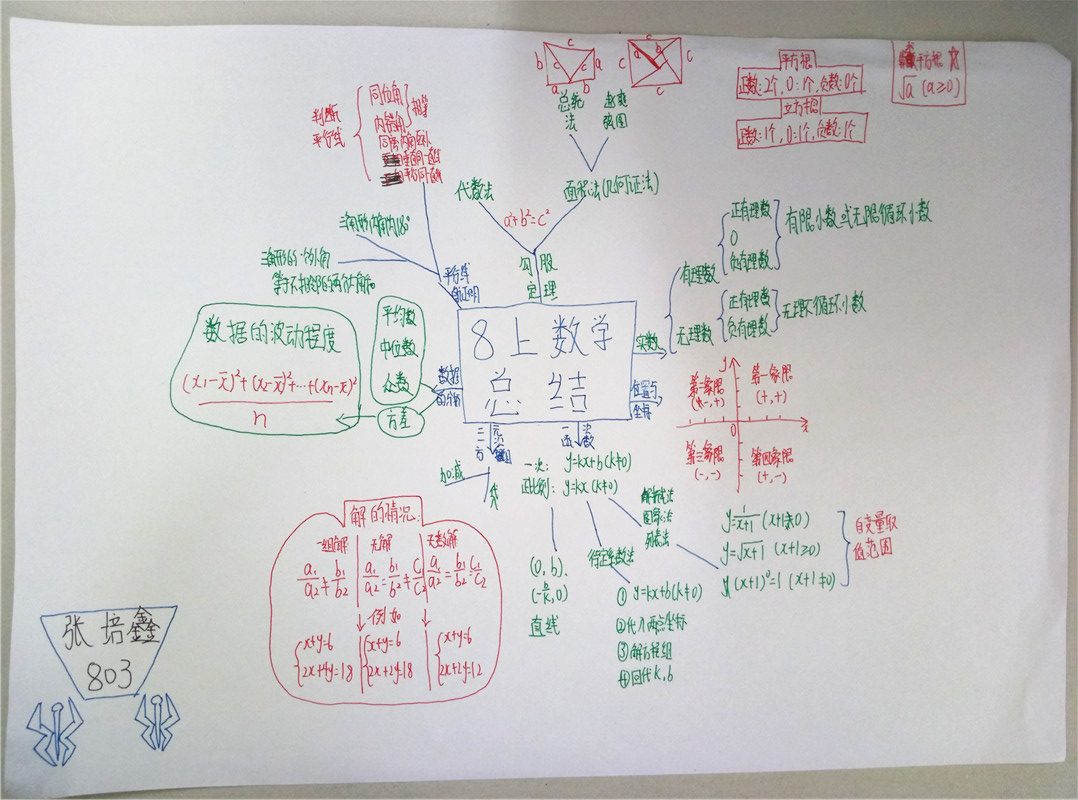 8上数学
总结
勾股
定理
a²+b²=c²
代数法
面积法(几何证法)
总统
法
赵爽
弦图
c
b
c
c
a
a
b
c
c
a
b
c
c
平方根
正数:2个,0=1个,负数:0个
立方根
正数:1个,0=1个,负数:1个
平方根
√a (a≥0)
判断
平行线
同位角
内错角
相等
同旁内角互补
平行线
的证明
三角形内角和180°
三角形的一个外角
等于不相邻的两个内角和
数据
的分析
平均数
中位数
众数
方差
数据的波动程度
(x₁-x̄)²+(x₂-x̄)²+…+(xₙ-x̄)²
n
实数
有理数
正有理数
0
负有理数
有限小数或无限循环小数
无理数
正有理数
负有理数
无理不循环小数
位置与
坐标
y
x
0
第二象限
(-,+)
第一象限
(+,+)
第三象限
(-,-)
第四象限
(+,-)
二元
一次
方
加减
代
一次
函数
一次: y=kx+b(k≠0)
正比例: y=kx(k≠0)
(0,b),
(-b/k,0)
直线
待定系数法
① y=kx+b(k≠0)
②代入两点坐标
③解方程组
④回代k,b
解析式法
图象法
列表法
y=1/(x+1) (x+1≠0)
y=√(x+1) (x+1≥0)
y(x+1)⁰=1 (x+1≠0)
自变量取
值范围
解的情况:
一组解
无解
无数解
a₁/a₂≠b₁/b₂
a₁/a₂=b₁/b₂≠c₁/c₂
a₁/a₂=b₁/b₂=c₁/c₂
例如
x+y=6
2x+4y=18
x+y=6
2x+2y=18
x+y=6
2x+2y=12
张培鑫
803